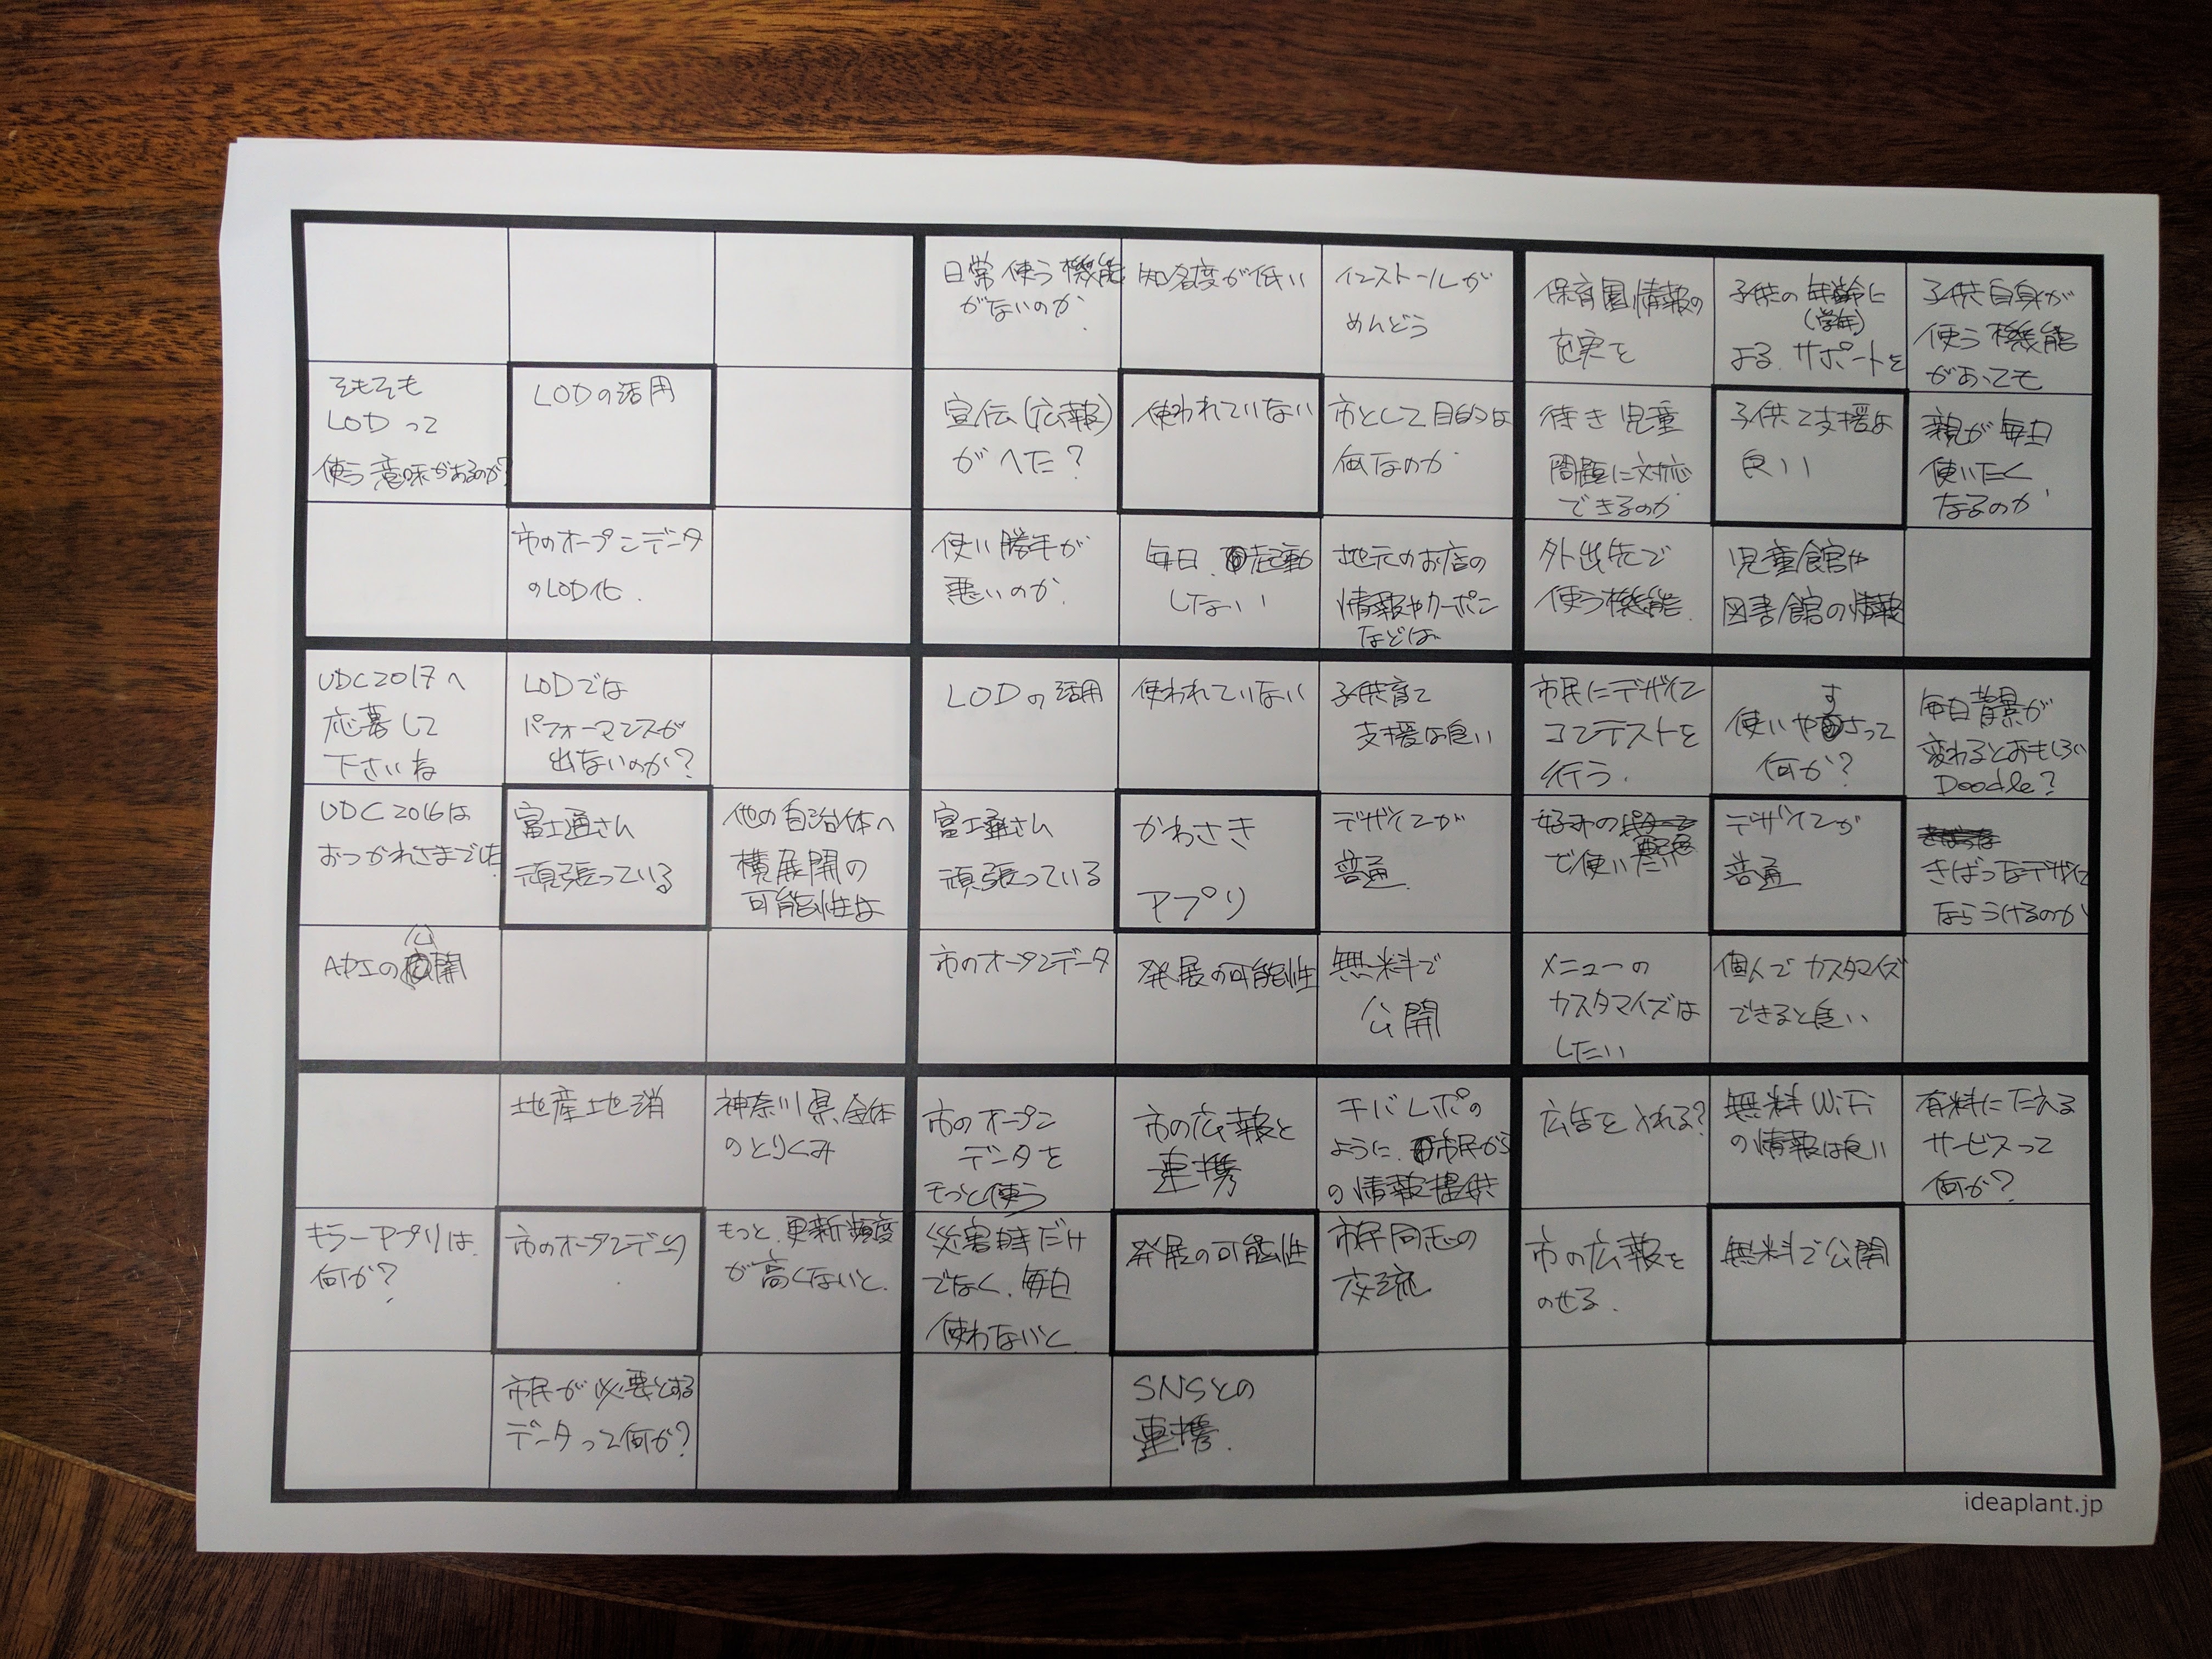 日常使う機能
がないのか
知名度が低い
インストールが
めんどう
保育園情報の
充実を
子供の年齢に
(学年)
よるサポートを
子供自身が
使う機能
があっても
そもそも
LODって
使う意味があるのか?
LODの活用
宣伝(広報)
がヘた?
使われていない
市として目的は
何なのか
待き児童
問題に対応
できるのか
子供て支援は
良い
親が毎日
使いたく
なるのか
市のオープンデータ
のLOD化.
使い勝手が
悪いのか.
毎日.起動
しない
地元のお店の
情報やクーポン
などは
外出先で
使う機能.
児童館や
図書館の情報
UDC2017へ
応募して
下さいね
LODでは
パフォーマンスが
出ないのか?
LODの活用
使われていない
子供育て
支援は良い
市民にデザイン
コンテストを
行う.
使いやすさって
何か?
毎日背景が
変わるとおもしろい
Doodle?
UDC2016は
おつかれさまでした
富士通さん
頑張っている
他の自治体へ
横展開の
可能性は
富士通さん
頑張っている
かわさき
アプリ
デザインが
普通.
好みの
で使いたい
デザインが
普通
きばつなデザイン
ならうけるのか
APIの公開
市のオープンデータ
発展の可能性
無料で
公開
メニューの
カスタマイズは
したい
個人でカスタマイズ
できると良い
地産地消
神奈川県全体
のとりくみ
市のオープン
データを
もっと使う
市の広報と
連携
チバレポの
ように.市民から
の情報提供
広告を入れる?
無料WiFi
の情報は良い
有料にたえる
サービスって
何か?
キラーアプリは.
何か?
市のオープンデータ
もっと.更新頻度
が高くないと.
災害時だけ
でなく.毎日
使わないと
発展の可能性
市民同志の
交流
市の広報を
のせる.
無料で公開
市民が必要とする
データって何か?
SNSとの
連携.
ideaplant.jp